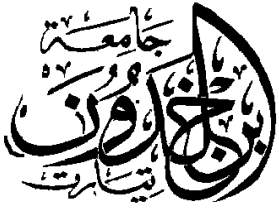 جَامِعَة
ابن خلدون
تيارت